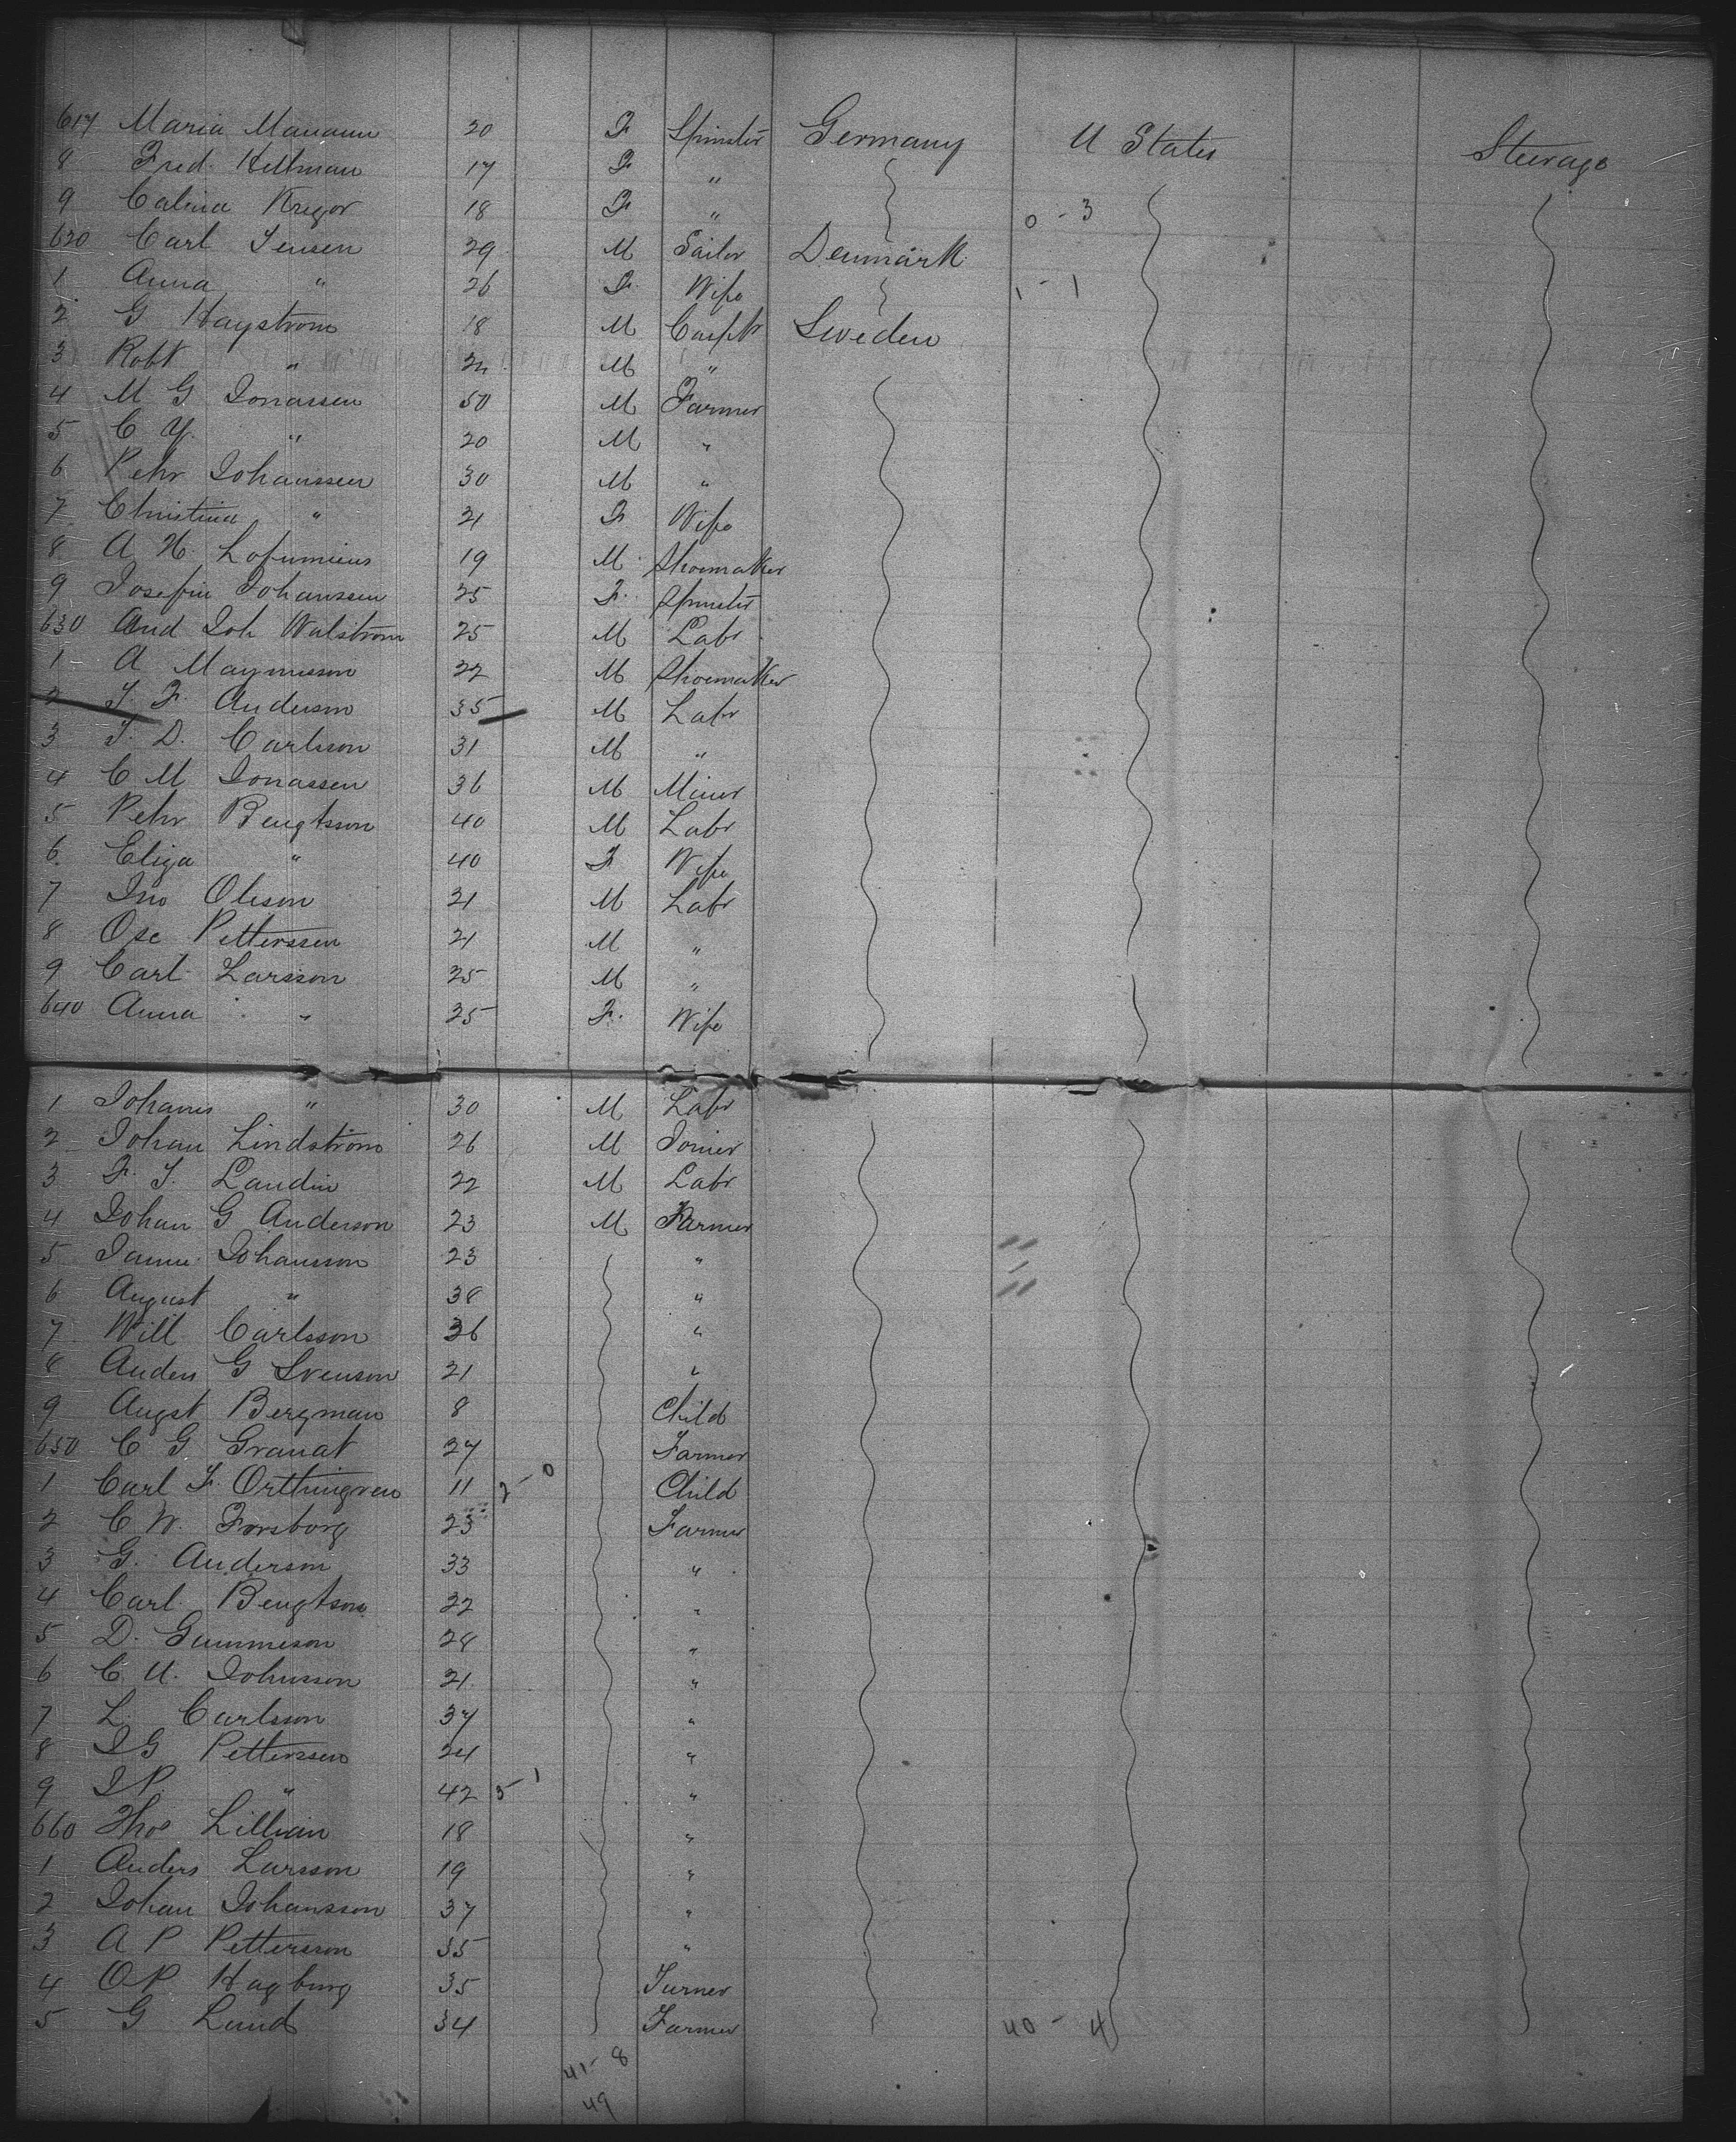 617 Maria Manann 20 F Spinster Germany U States Steerage
8 Fred. Hellman 17 F "
9 Calina Kregor 18 F " 0-3
620 Carl Jensen 29 M Sailor Denmark
1 Anna " 26 F Wife 1-1
2 G Haystrom 18 M Carptr Sweden
3 Robt " 24 M "
4 M G Jonassen 50 M Farmer
5 C Y. " 20 M "
6 Pehr Johanssen 30 M "
7 Christina " 21 F Wife
8 A H 19 M Shoemaker
9 Josefin Johanssen 25 F. Spinster
630 And Joh Walstrom 25 M Labr
1 A Magnusson 22 M Shoemaker
2 J. F. Anderson 35 M Labr
3 J. D. Carlsson 31 M "
4 C M Jonassen 36 M Miner
5 Pehr Bengtsson 40 M Labr
6 Eliza " 40 F Wife
7 Jno Oleson 21 M Labr
8 Osc Petterssen 21 M "
9 Carl Larsson 25 M "
640 Anna " 25 F. Wife
1 Johans " 30 M Labr
2 Johan Lindstrom 26 M Joiner
3 F. J. Landin 22 M Labr
4 Johan G Anderson 23 M Farmer
5 Janne Johansson 23 "
6 August " 38 "
7 Will Carlsson 36 "
8 Anders G Svenson 21 "
9 Augst Bergman 8 Child
650 C G Granat 27 Farmer
1 Carl F. Orthingren 11 2-0 Child
2 C W. Forsborg 23 Farmer
3 G. Anderson 33 "
4 Carl Bengtson 22 "
5 D. Gummeson 28 "
6 C U. Johnsson 21 "
7 L. Carlsson 37 "
8 J G Petterssen 24 "
9 J P. " 42 5-1 "
660 Thos Lillian 18 "
1 Anders Larsson 19 "
2 Johan Johansson 37 "
3 A P Pettersson 35 "
4 O P. Hagburg 35 Turner
5 G Lund 34 Farmer 40-4
41-8
49